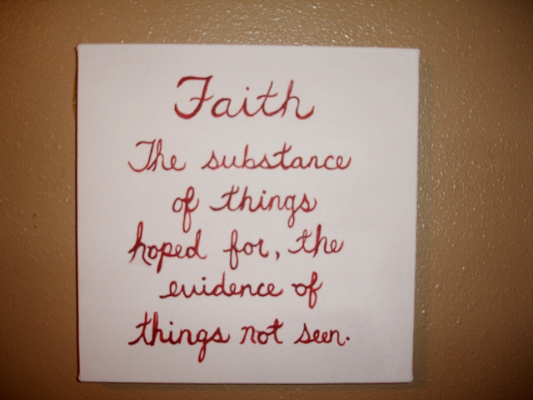 Faith
The substance
of things
hoped for, the
evidence of
things not seen.